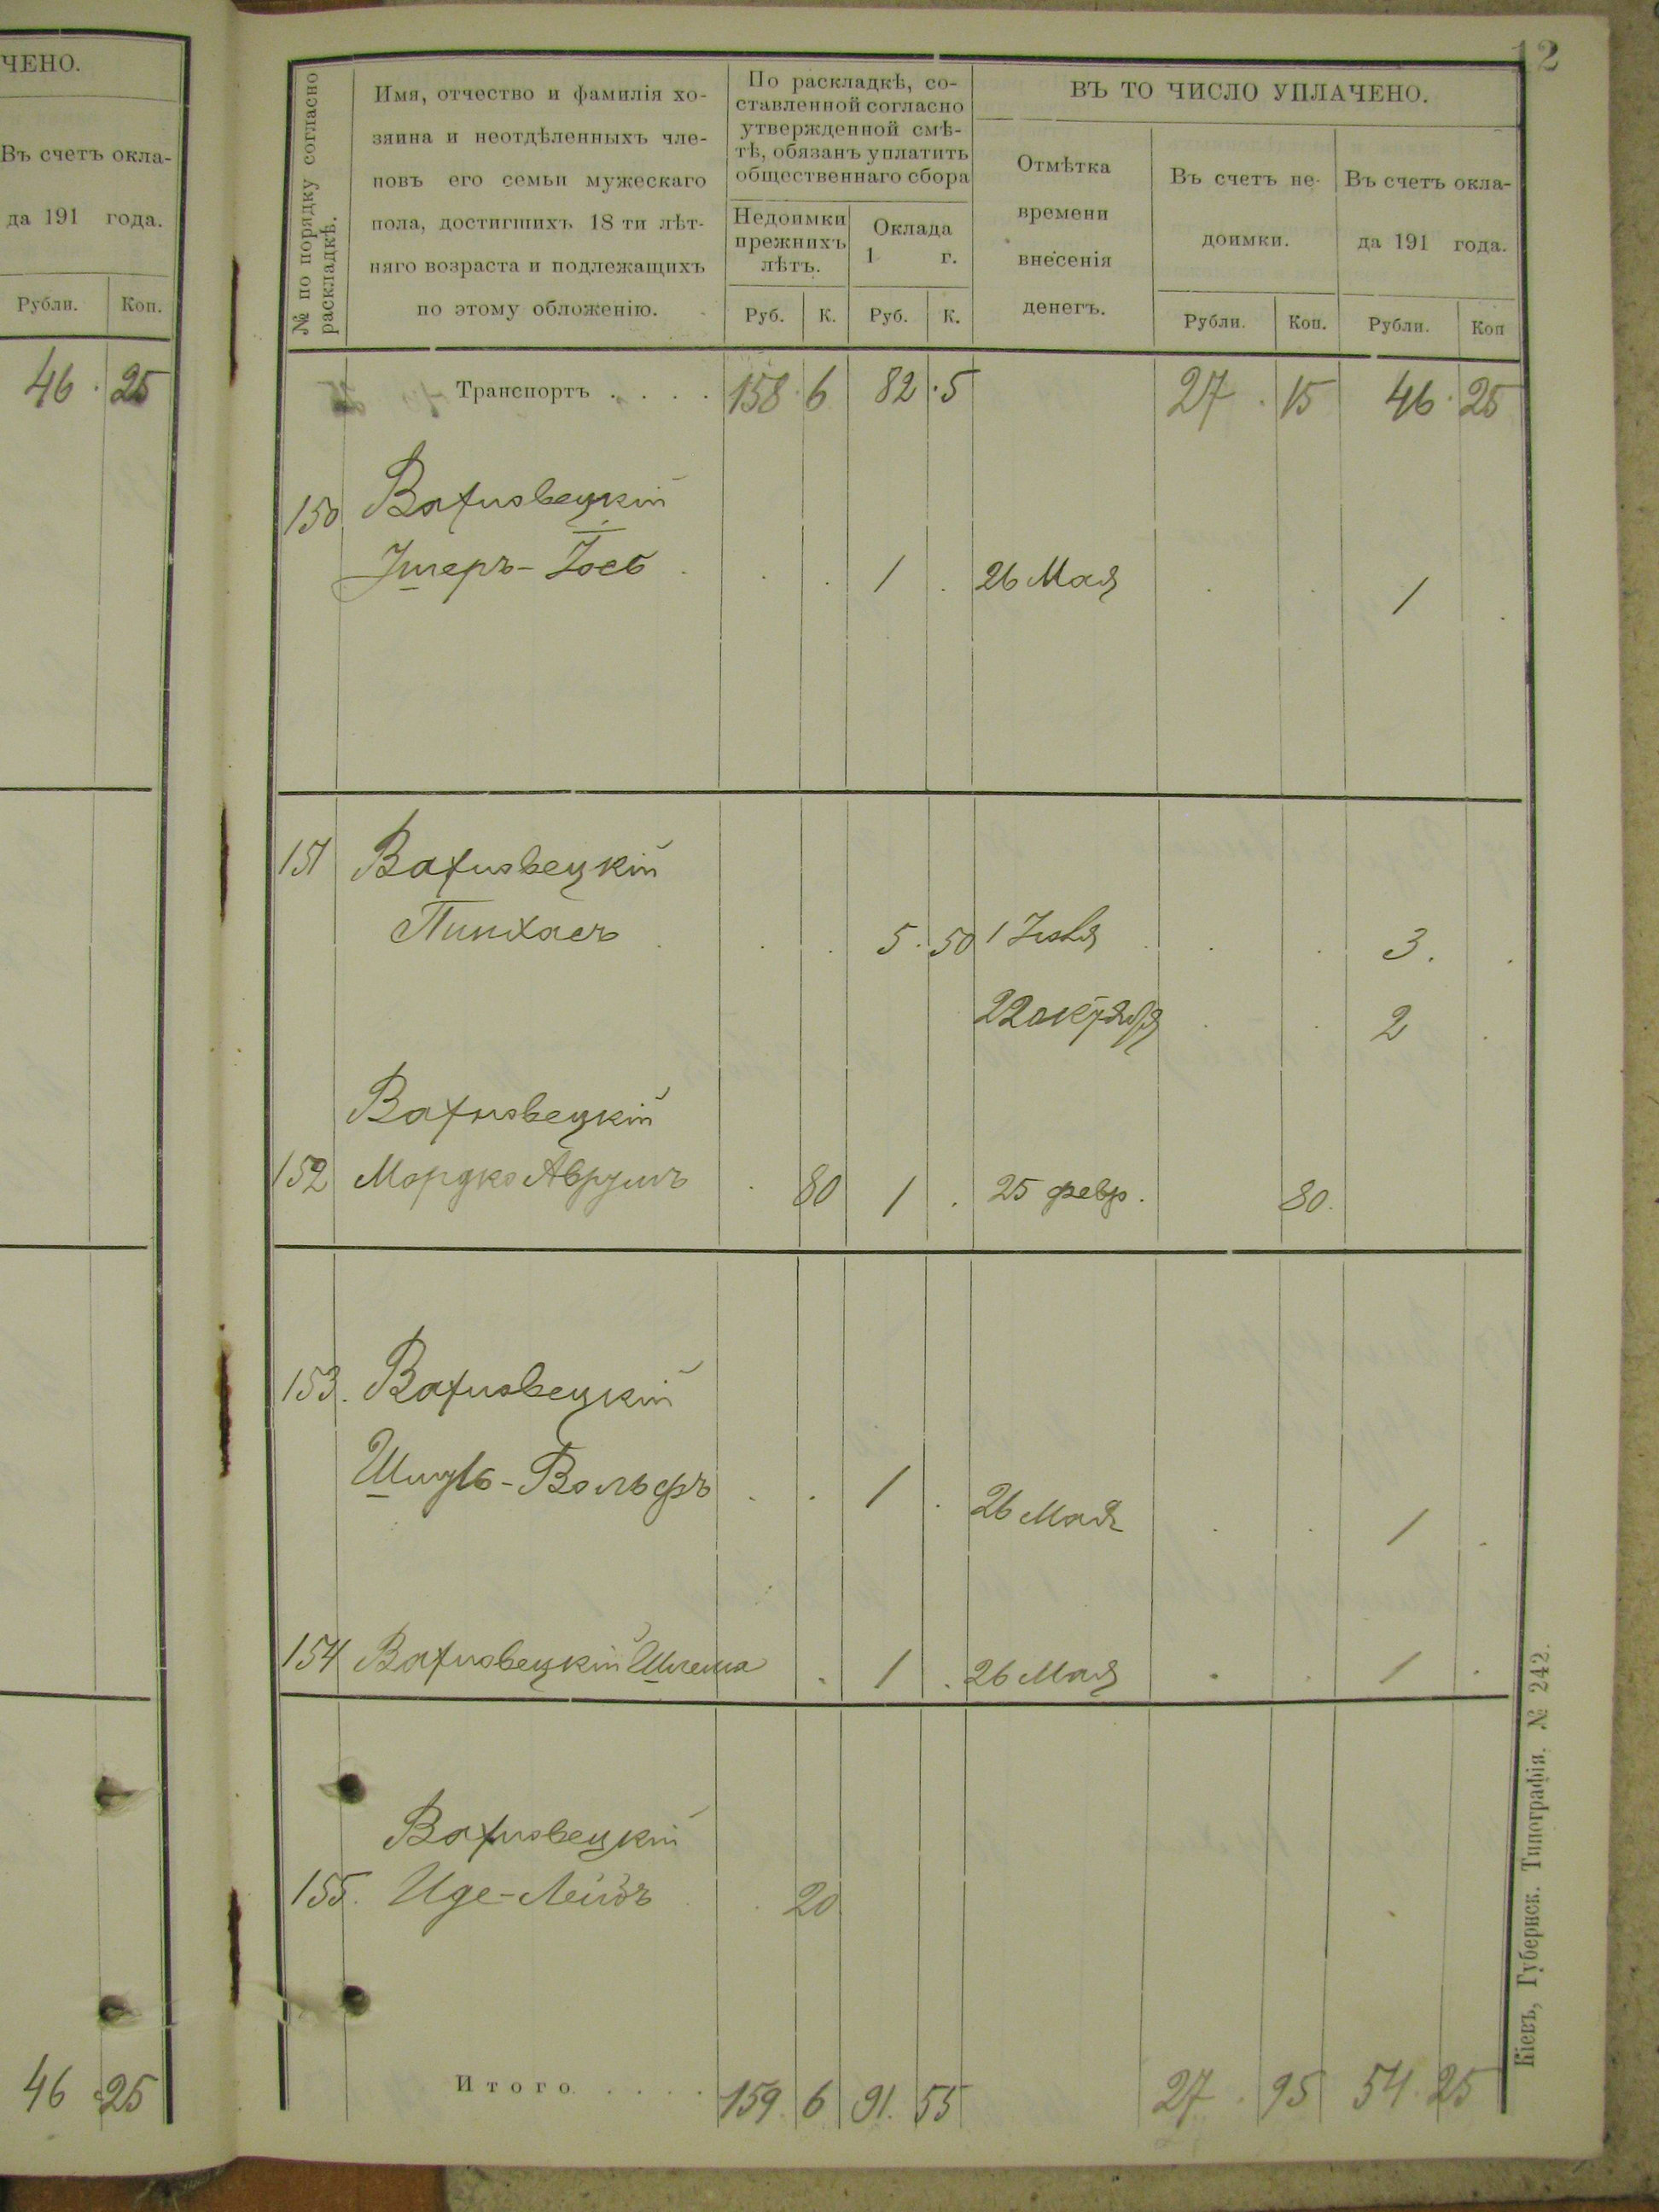 ЧЕНО.
Въ счетъ окла-
да 191 года.
Рубли. Коп.
46 . 25
46 25
12
№ по порядку согласно
раскладкѣ.
Имя, отчество и фамилія хо-
зяина и неотдѣленныхъ чле-
новъ его семьи мужескаго
пола, достигшихъ 18 ти лѣт-
няго возраста и подлежащихъ
по этому обложенію.
По раскладкѣ, со-
ставленной согласно
утвержденной смѣ-
тѣ, обязанъ уплатить
общественнаго сбора
Недоимки
прежнихъ
лѣтъ.
Оклада
1 г.
Руб. К. Руб. К.
ВЪ ТО ЧИСЛО УПЛАЧЕНО.
Отмѣтка
времени
внесенія
денегъ.
Въ счетъ не-
доимки.
Въ счетъ окла-
да 191 года.
Рубли. Коп. Рубли. Коп
Транспортъ . . . . 158 . 6 82 . 5 27 . 15 46 . 25
150 Вахновецкій
Iось . . . 1 . 26 Мая . . 1 .
151 Вахновецкій
Пинхасъ . . . 5 . 50 1 . . 3 . .
22 октября . . 2 .
Вахновецкій
152 Мордко Аврумъ . 80 1 . 25 февр. 80.
153. Вахновецкій
Шмуль-Вольфъ . . 1 . 26 Мая . . 1 .
154 Вахновецкій Шлема . 1 . 26 Мая . . 1 .
Вахновецкій
155. Иде-Лейбъ . . 20
Итого . . . . 159 . 6 91 . 55 27 . 95 54 . 25
Кіевъ, Губернск. Типографія. № 242.